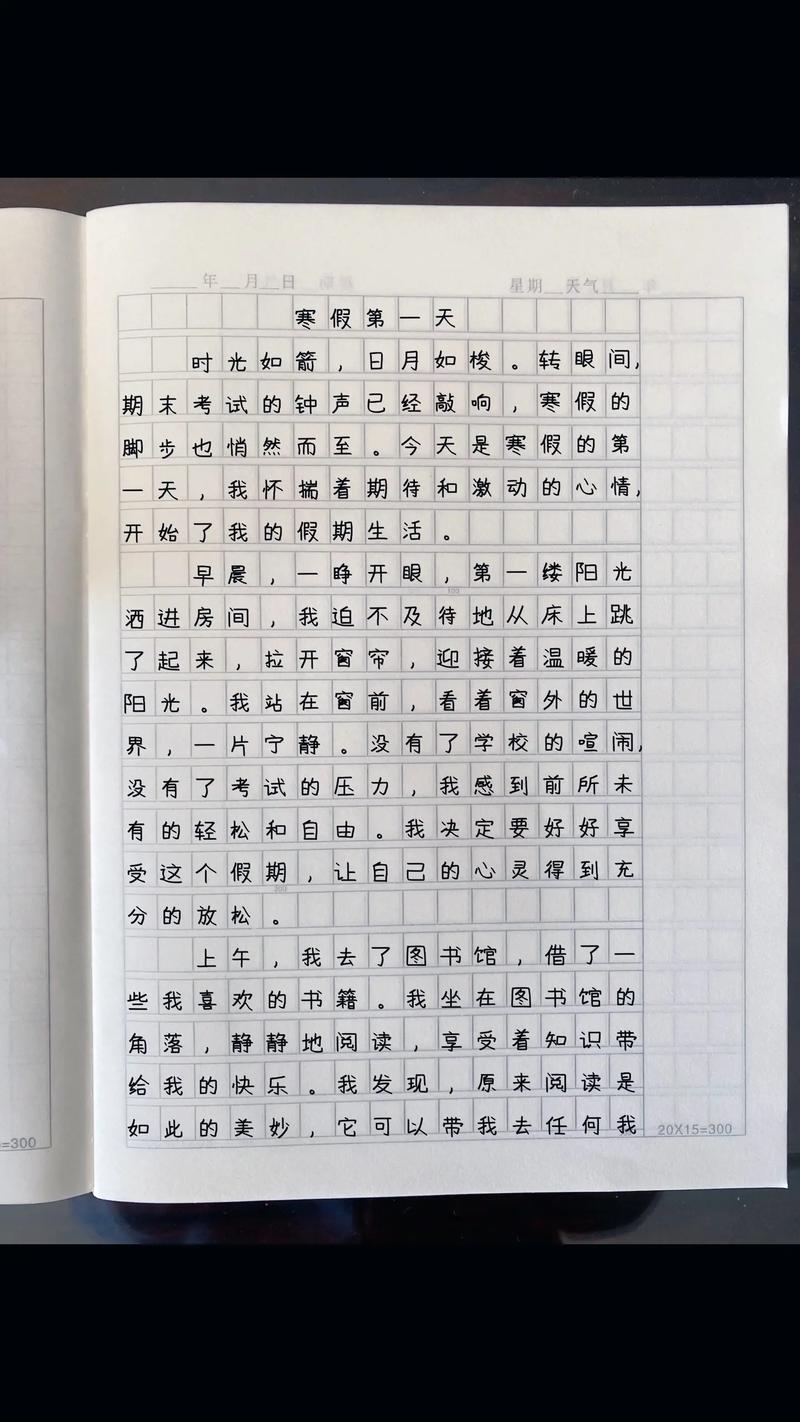 年 月 日
星期 天气
寒假第一天
时光如箭,日月如梭。转眼间,
期末考试的钟声已经敲响,寒假的
脚步也悄然而至。今天是寒假的第
一天,我怀揣着期待和激动的心情,
开始了我的假期生活。
早晨,一睁开眼,第一缕阳光
100
洒进房间,我迫不及待地从床上跳
了起来,拉开窗帘,迎接着温暖的
阳光。我站在窗前,看着窗外的世
界,一片宁静。没有了学校的喧闹,
没有了考试的压力,我感到前所未
有的轻松和自由。我决定要好好享
受这个假期,让自己的心灵得到充
200
分的放松。
上午,我去了图书馆,借了一
些我喜欢的书籍。我坐在图书馆的
角落,静静地阅读,享受着知识带
给我的快乐。我发现,原来阅读是
如此的美妙,它可以带我去任何我
20X15=300
=300